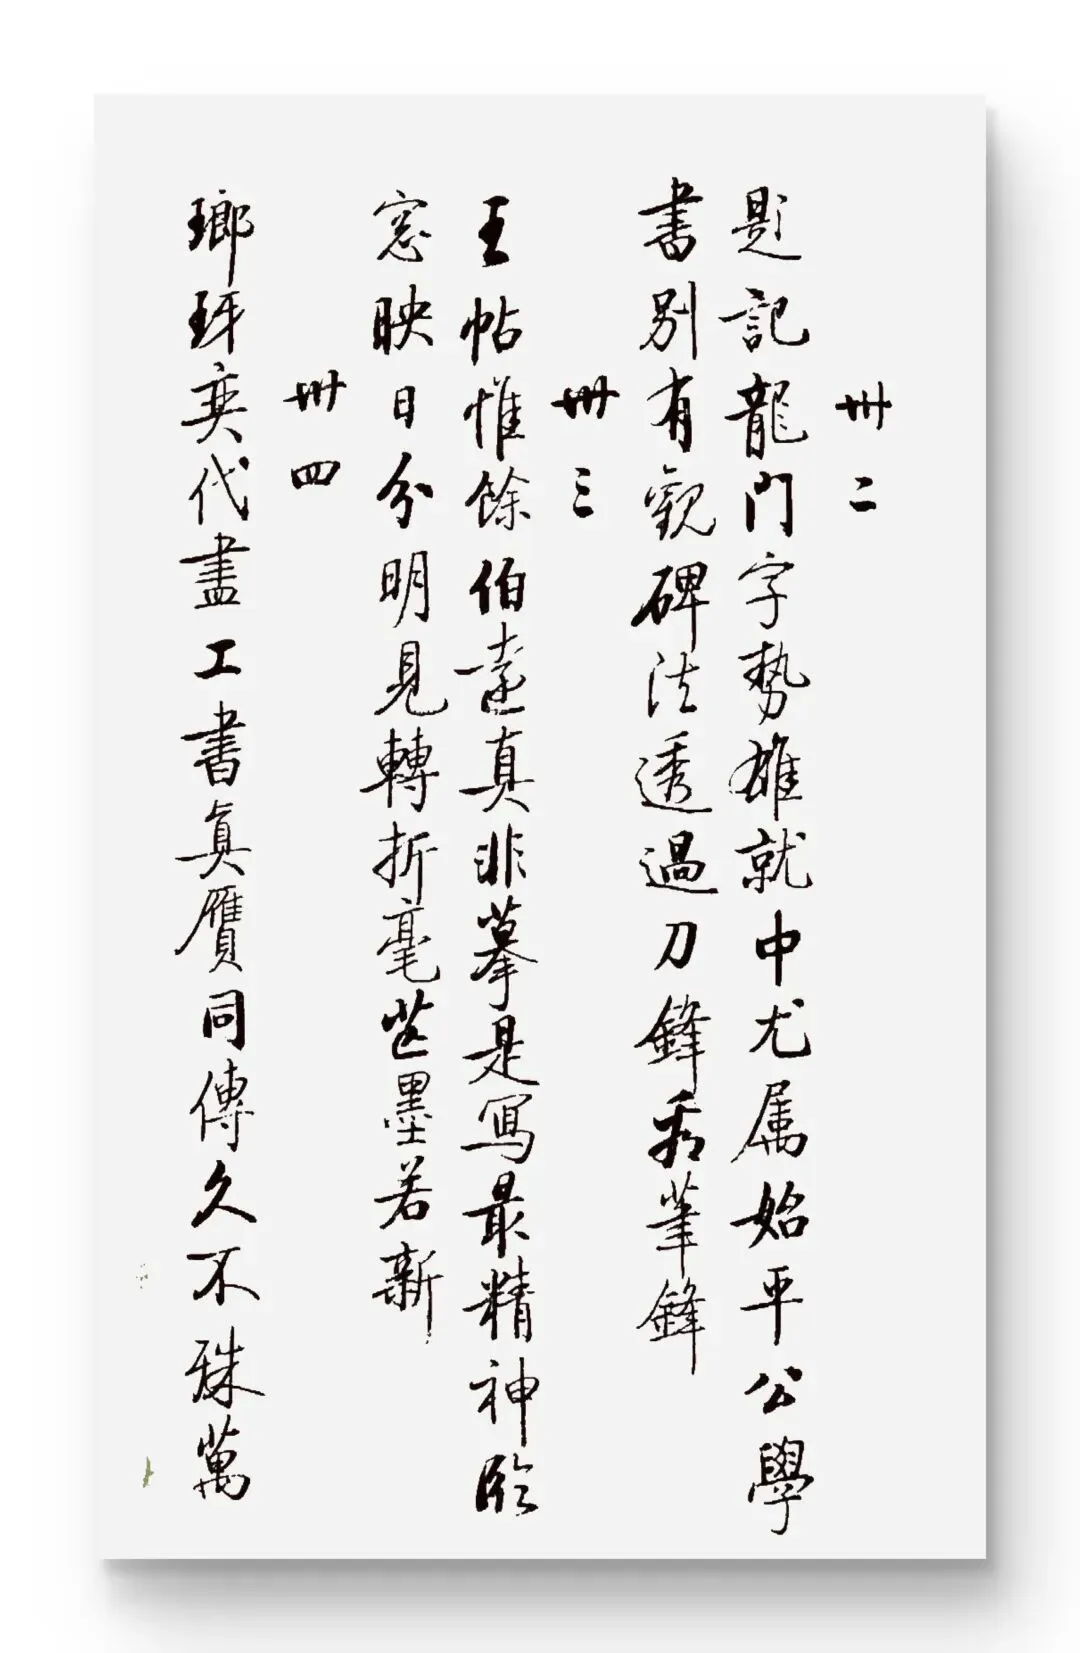 卅二
題記龍門字勢雄就中尤属始平公學
書別有觀碑法透過刀鋒看筆鋒
卅三
王帖惟餘伯遠真非摹是寫最精神臨
窓映日分明見轉折毫芒墨若新
卅四
瑯玡奕代盡工書真贋同傳久不殊萬